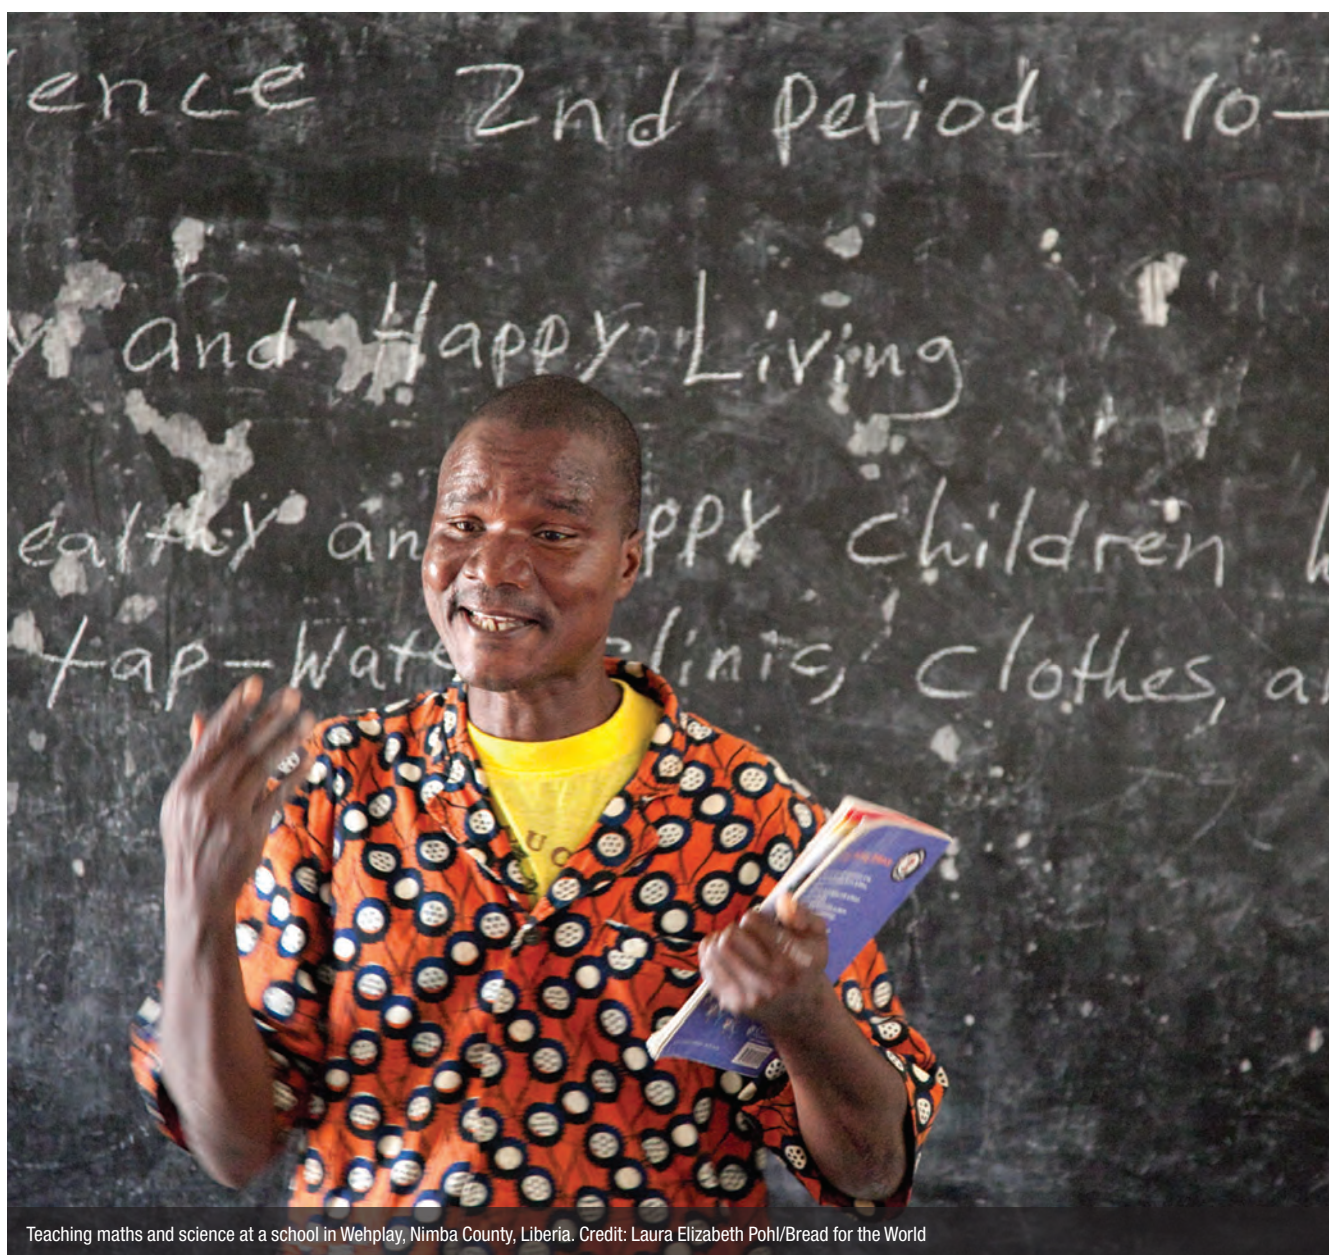 ence 2nd Period 10-
y and Happy Living
ealthy an ppy children h
tap-Wat clinic, clothes, a
UC
Teaching maths and science at a school in Wehplay, Nimba County, Liberia. Credit: Laura Elizabeth Pohl/Bread for the World